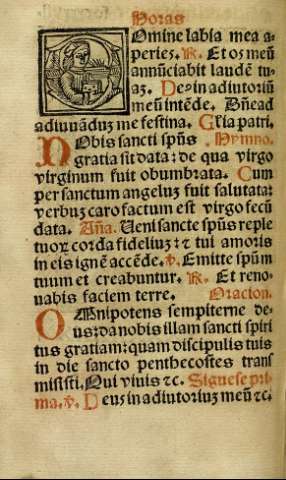 Horas
Domine labia mea a-
peries. ℟. Et os meũ
annũciabit laudẽ tu-
aʒ. Deꝰ in adiutoriũ
meũ intẽde. Dñe ad
adiuuãdũʒ me festina. Gl̃ia patri.
Nobis sancti spũs Hymno.
gratia sit data: de qua virgo
virginum fuit obumbrata. Cum
per sanctum angeluʒ fuit salutata:
verbuʒ caro factum est virgo fecũ
data. Aña. Ueni sancte spũs reple
tuoꝝ corda fideliuʒ: ⁊ tui amoris
in eis ignẽ accẽde. ℣. Emitte spũm
tuum et creabuntur. ℟. Et reno-
uabis faciem terre. Oracion.
OMnipotens sempiterne de-
us: da nobis illam sancti spiri
tus gratiam: quam discipulis tuis
in die sancto penthecostes trans
misisti. Qui viuis ⁊c. Siguese pri-
ma. ℣. Deus in adiutoriuʒ meũ ⁊c.